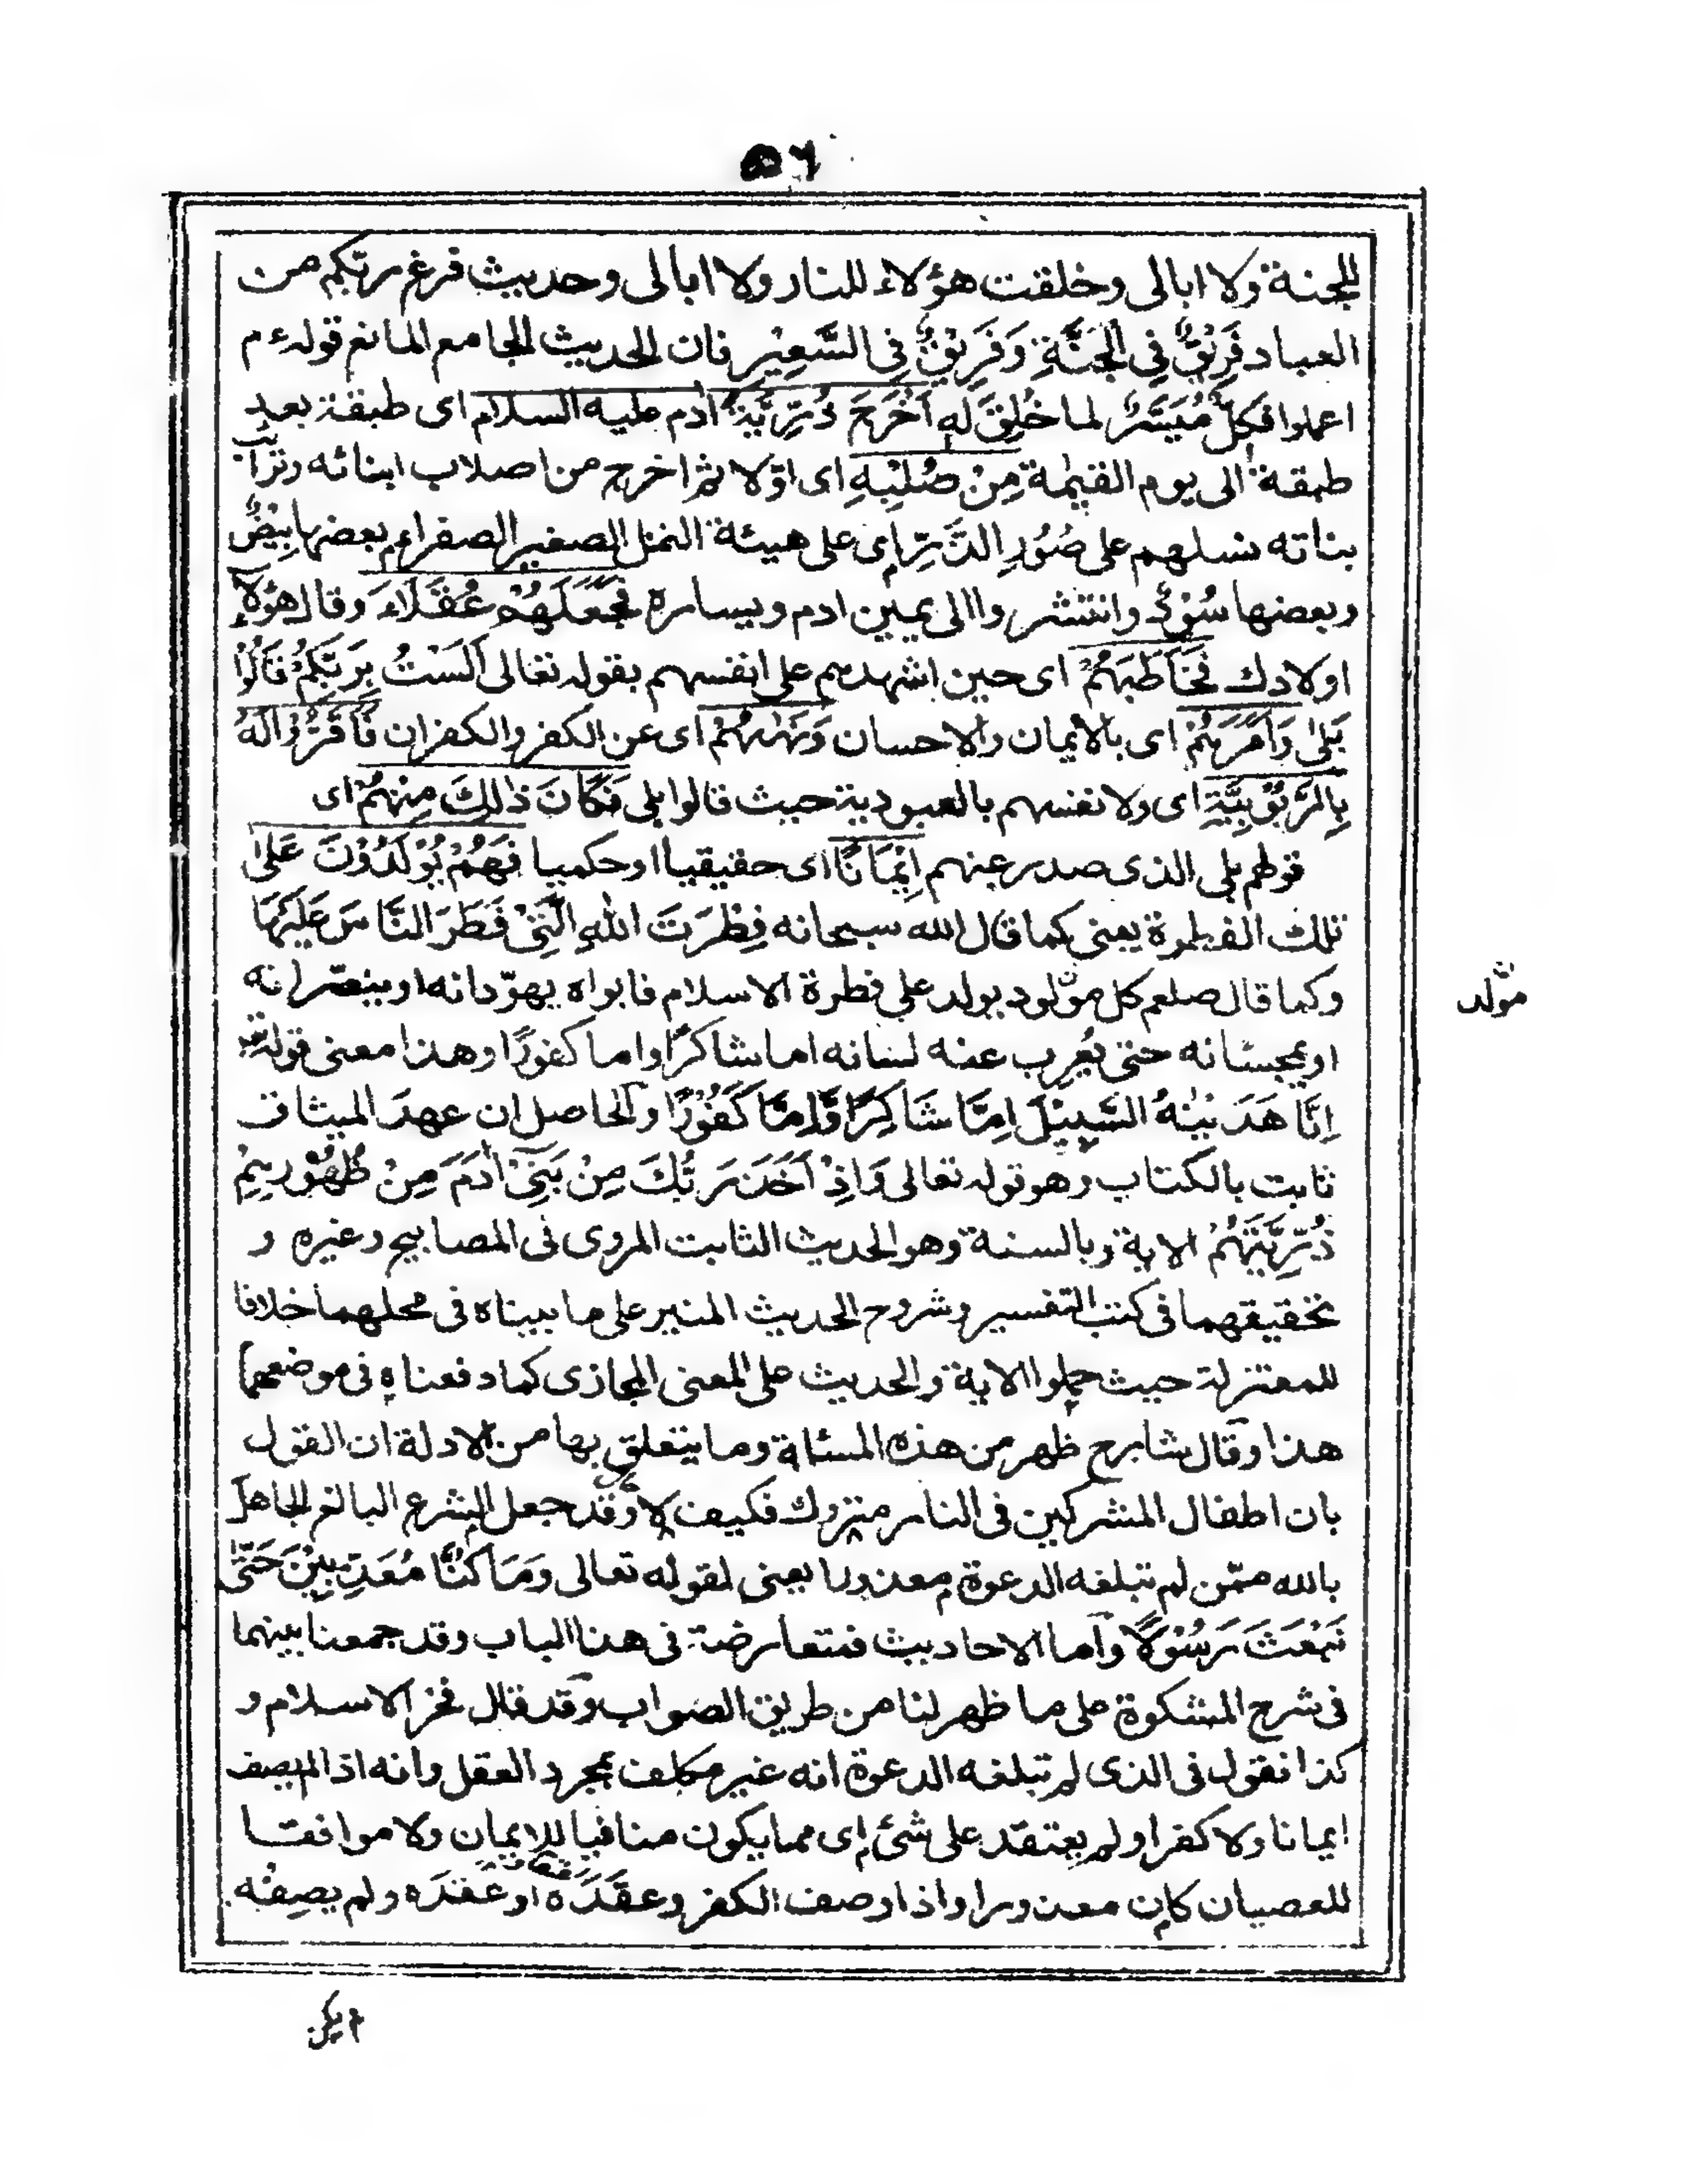 ٥٦
للجنة ولا ابالى وخلقت هؤلاء للنار ولا ابالى وحديث فرغ ربكم من
العباد فَرِيْقٌ فِي الْجَنَّةِ وَفَرِيْقٌ فِي السَّعِيْرِ فان الحديث الجامع المانع قوله ءم
اعملوا فكلٌّ مُيَسَّرٌ لما خُلِقَ لَه اَخْرَجَ ذُرِّيَّةَ اٰدم عليه السلام اى طبقة بعد
طبقة الى يوم القيٰمة مِنْ صُلْبِهٖ اى اوّلا ثم اخرج من اصلاب ابنائه وترائب
بناته نسلهم على صُوَرِ الذَّرِّ اى على هيئة النمل الصغير الصفراء بعضها بِيْضٌ
وبعضها سُوْدٌ وانتشروا الى يمين ادم ويساره فَجَعَلَهُمْ عُقَلَاءَ وقال هؤلاء
اولادك فَخَاطَبَهُمْ اى حين اشهدهم على انفسهم بقوله تعالى اَلَسْتُ بِرَبِّكُمْ قَالُوْا
بَلٰى وَاَمَرَهُمْ اى بالايمان والاحسان وَنَهٰهُمْ اى عن الكفر والكفران فَاَقَرُّوْا لَهُ
بِالرُّبُوْبِيَّةِ اى ولانفسهم بالعبودية حيث قالوا بلى فَكَانَ ذٰلِكَ مِنْهُمْ اى
قولهم بلى الذى صدر عنهم اِيْمَانًا اى حقيقيا او حكميا فَهُمْ يُوْلَدُوْنَ عَلٰى
تلك الفطرة يعنى كما قال الله سبحانه فِطْرَتَ اللّٰهِ الَّتِيْ فَطَرَ النَّاسَ عَلَيْهَا
وكما قال صلعم كل مولود يولد على فطرة الاسلام فابواه يهوّدانه او ينصّرانه
مولد
او يمجسانه حتى يُعْرِب عنه لسانه اما شاكرًا واما كفورًا وهذا معنى قوله تعالى
اِنَّا هَدَيْنٰهُ السَّبِيْلَ اِمَّا شَاكِرًا وَّاِمَّا كَفُوْرًا والحاصل ان عهدَ الميثاق
ثابت بالكتاب وهو قوله تعالى وَاِذْ اَخَذَ رَبُّكَ مِنْ بَنِيْ اٰدَمَ مِنْ ظُهُوْرِهِمْ
ذُرِّيَّتَهُمْ الاية وبالسنة وهو الحديث الثابت المروى فى المصابيح وغيره و
تحقيقهما فى كتب التفسير وشروح الحديث المنير على ما بيناه فى محلهما خلافا
للمعتزلة حيث حملوا الاية والحديث على المعنى المجازى كما دفعناه فى موضعهما
هذا وقال شارح ظهر من هذه المسئلة وما يتعلق بها من الادلة ان القول
بان اطفال المشركين فى النار متروك فكيف لا وقد جعل الشرع البالغ الجاهل
بالله ممّن لم تبلغه الدعوة معذورا يعنى لقوله تعالى وَمَا كُنَّا مُعَذِّبِيْنَ حَتّٰى
نَبْعَثَ رَسُوْلًا واما الاحاديث فمتعارضة فى هذا الباب وقد جمعنا بينهما
فى شرح المشكوة على ما ظهر لنا من طريق الصواب وقد قال فخر الاسلام و
كذا نقول فى الذى لم تبلغه الدعوة انه غير مكلف بمجرد العقل وانه اذا لم يصف
ايمانا ولا كفرا ولم يعتقد على شئ اى مما يكون منافيا للايمان ولا موافقا
للعصيان كان معذورا واذا وصف الكفر وعقَدَه او عَقَدَه ولم يصِفْه